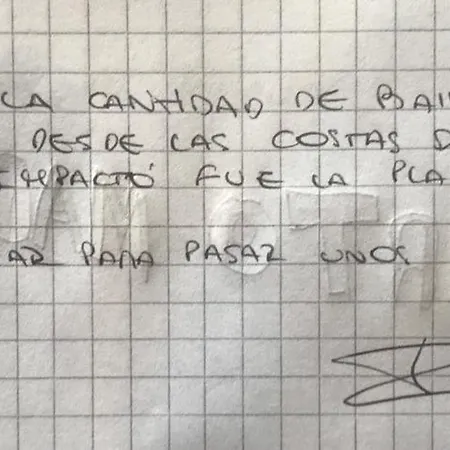 LA CANTIDAD DE BAI
DESDE LAS COSTAS D
IMPACTÓ FUE LA PLA
AR PARA PASAR UNOS